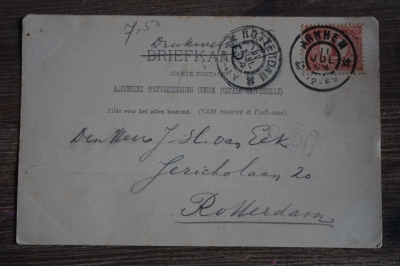 7,5
Drukwerk
BRIEFKAART
(CARTE POSTALE)
ALGEMEENE POSTVEREENIGING (UNION POSTALE UNIVERSELLE)
Zijde voor het adres bestemd. (Côté réservé à l'adresse)
ROTTERDAM
ARNHEM
11
JUL
Den Heer J. H. van Eck
Jericholaan 20
Rotterdam